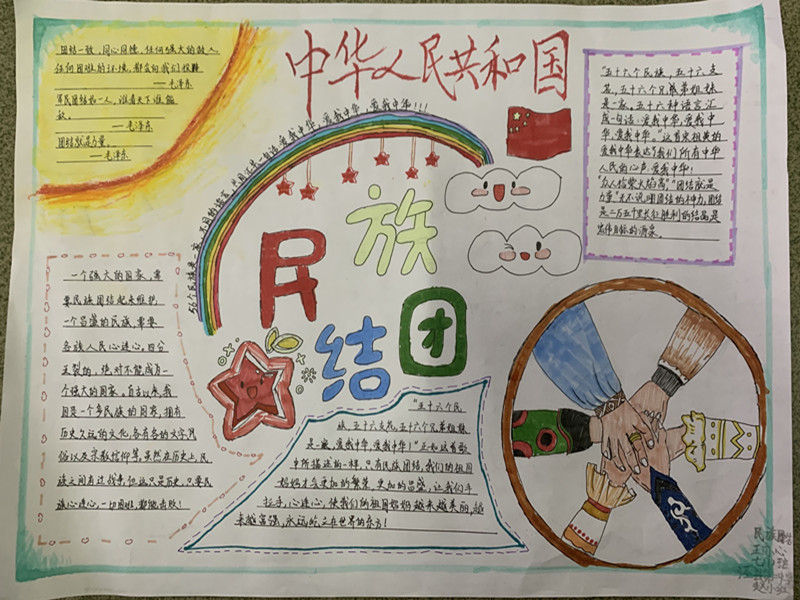 中华人民共和国
团结一致，同心同德，任何强大的敌人
任何困难的环境，都会向我们投降
——毛泽东
军民团结如一人，试看天下谁能
敌。
——毛泽东
团结就是力量。
——毛泽东
56个民族是一家，不同的语言，共同汇成一句话：爱我中华，爱我中华，爱我中华!!!
"五十六个民族，五十六支
花，五十六个兄弟姐妹
是一家，五十六种语言汇
成一句话：爱我中华，爱我中
华，爱我中华。"这首史祖英的
爱我中华表达了我们所有中华
人民的心声，爱我中华！
"众人拾柴火焰高""团结就是
力量"无不说明团结的神力，团结
是二万五千里长征胜利的结局是
宏伟目标的源泉。
民族
团结
一个强大的国家，需
要民族团结起来维护，
一个昌盛的民族，需要
各族人民心连心，四分
五裂的，绝对不能成为一
个强大的国家。自古以来，我
国是一个多民族的国家，拥有
历史久远的文化，各有各的文字，风
俗以及宗教信仰等，虽然在历史上，民
族之间有过战争，但这只是历史，只要民
族心连心，一切困难，都能击败！
"五十六个民
族，五十六支花，五十六个兄弟姐妹
是一家，爱我中华，爱我中华！"正如这首歌
中所描述的一样，只有民族团结，我们的祖国
妈妈才会更加的繁荣，更加的昌盛，让我们手
拉手，心连心，使我们的祖国妈妈越来越美丽，越
来越富强，永远屹立在世界的东方！